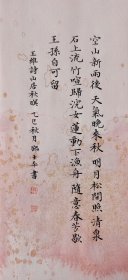 空山新雨後天氣晚來秋明月松間照清泉
石上流竹喧歸浣女蓮動下漁舟隨意春芳歇
王孫自可留
王維詩山居秋暝乙巳秋月